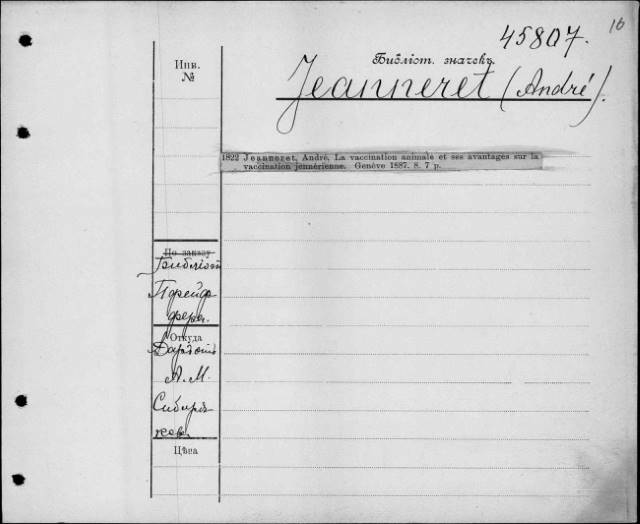 45807.
16
Инв.
№
Библіот. значекъ
Jeanneret (André).
1822 Jeanneret, André, La vaccination animale et ses avantages sur la
vaccination jennérienne. Genève 1887. 8. 7 p.
По заказу
Библіот
Пфейф
фера.
Откуда
Даръ отъ
А. М.
Сибиря
кова
Цѣна